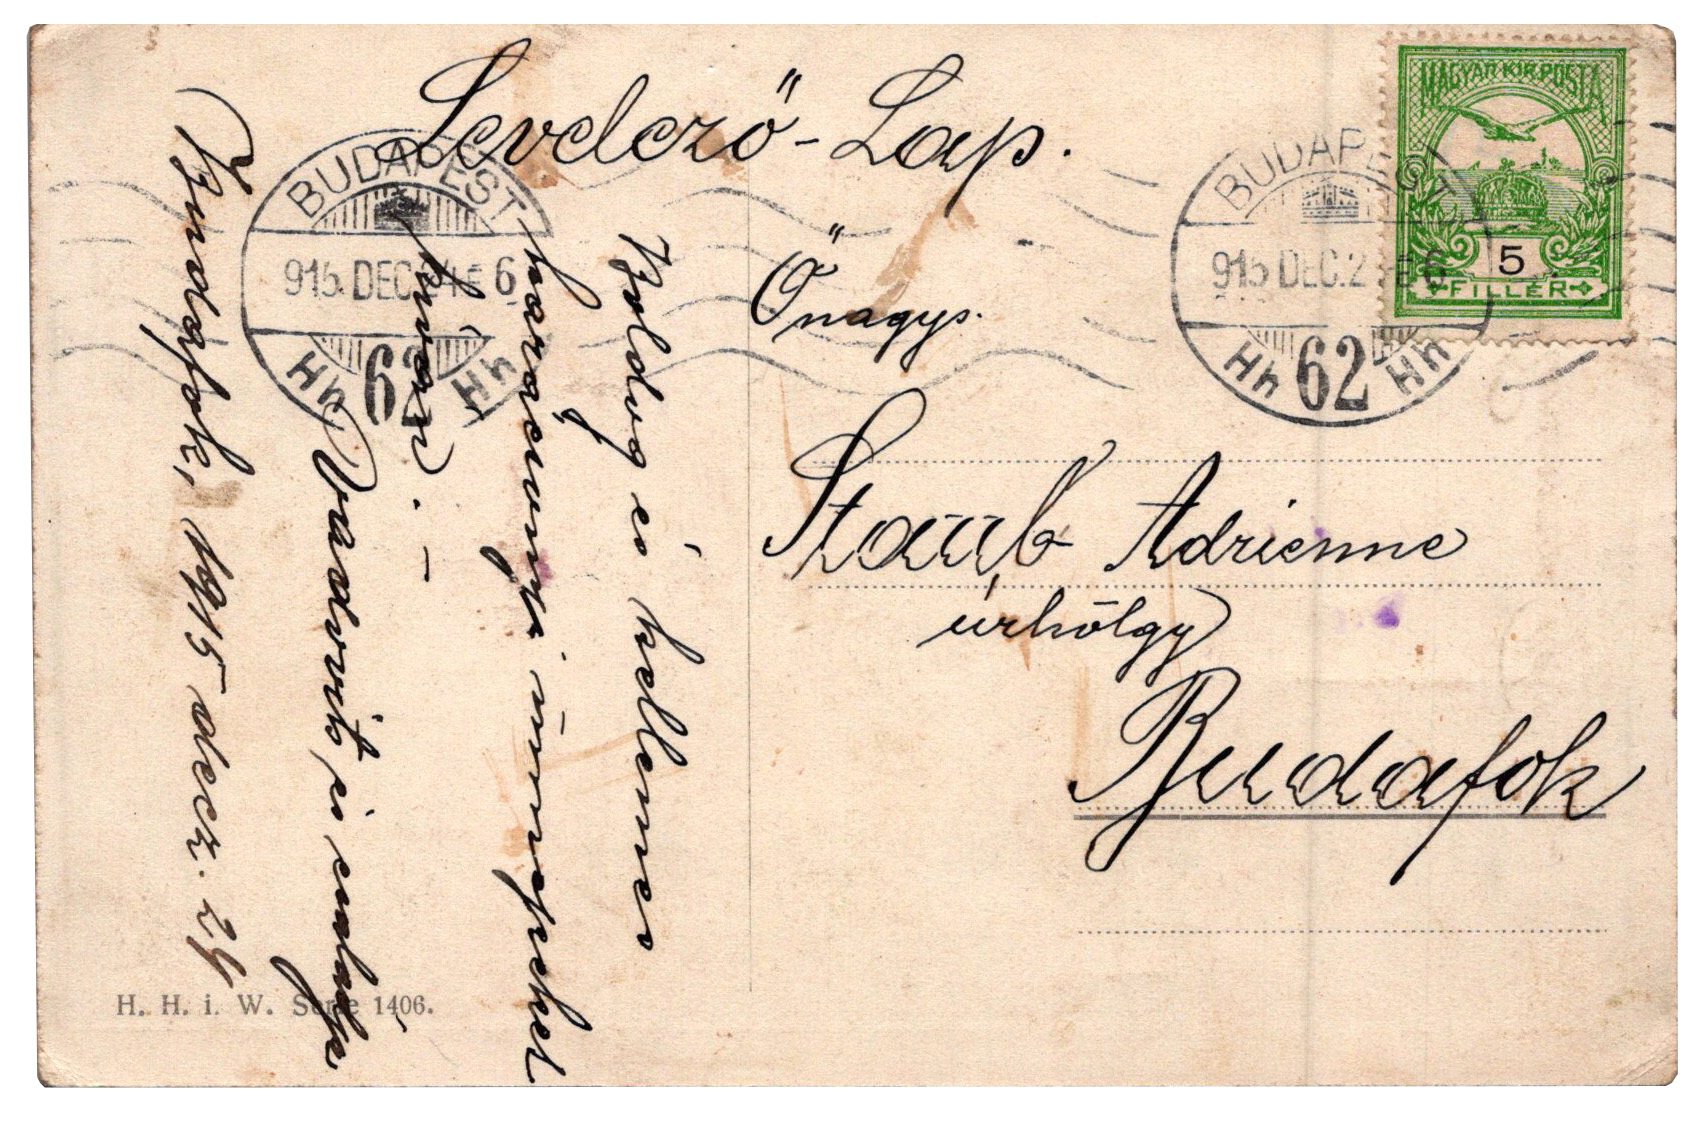 Levelező-Lap.
Őnagys.
Staub Adrienne
úrhölgy
Budafok
Boldog és kellemes
karácsonyi ünnepeket
kíván. —
és családja
Budafok, 1915 dec. 24
MAGYAR KIR. POSTA
5
FILLÉR
BUDAPEST
915 DEC. 24 6
Hh 62 Hh
BUDAPEST
915 DEC. 2 6
Hh 62 Hh
H. H. i. W. Serie 1406.